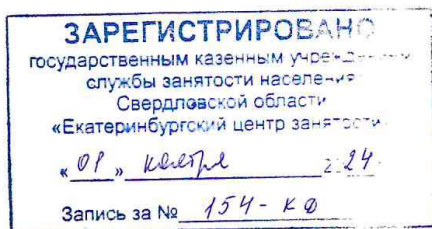 ЗАРЕГИСТРИРОВАНО
государственным казенным учреждением
службы занятости населения
Свердловской области
«Екатеринбургский центр занятости»
« 01 » ноября 2024
Запись за № 154-КД